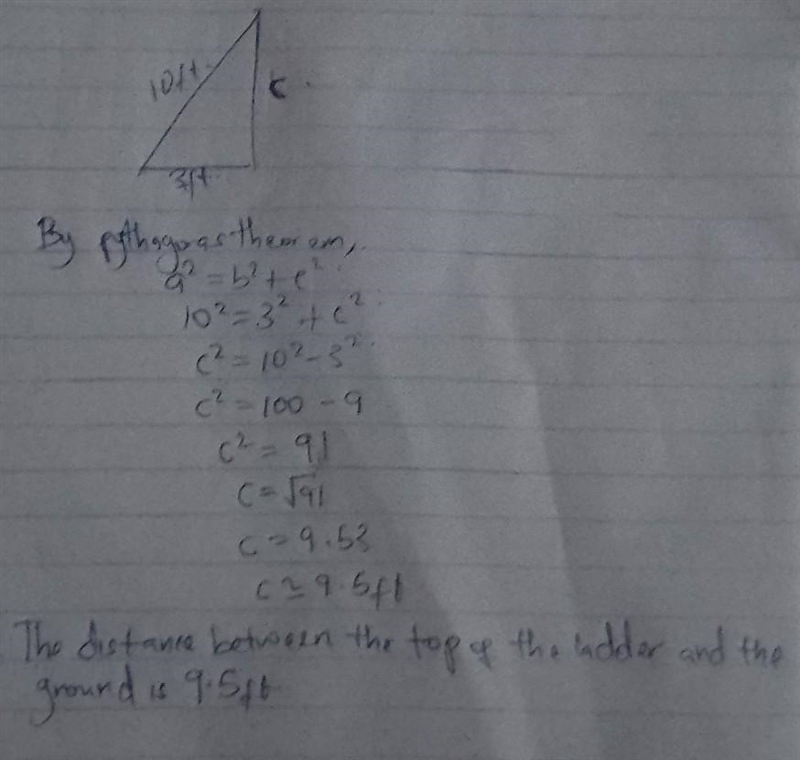 10ft
c
3ft
By pythagoras theorem,
a² = b² + c²
10² = 3² + c²
c² = 10² - 3²
c² = 100 - 9
c² = 91
c = √91
c = 9.53
c ≃ 9.5ft
The distance between the top of the ladder and the
ground is 9.5ft